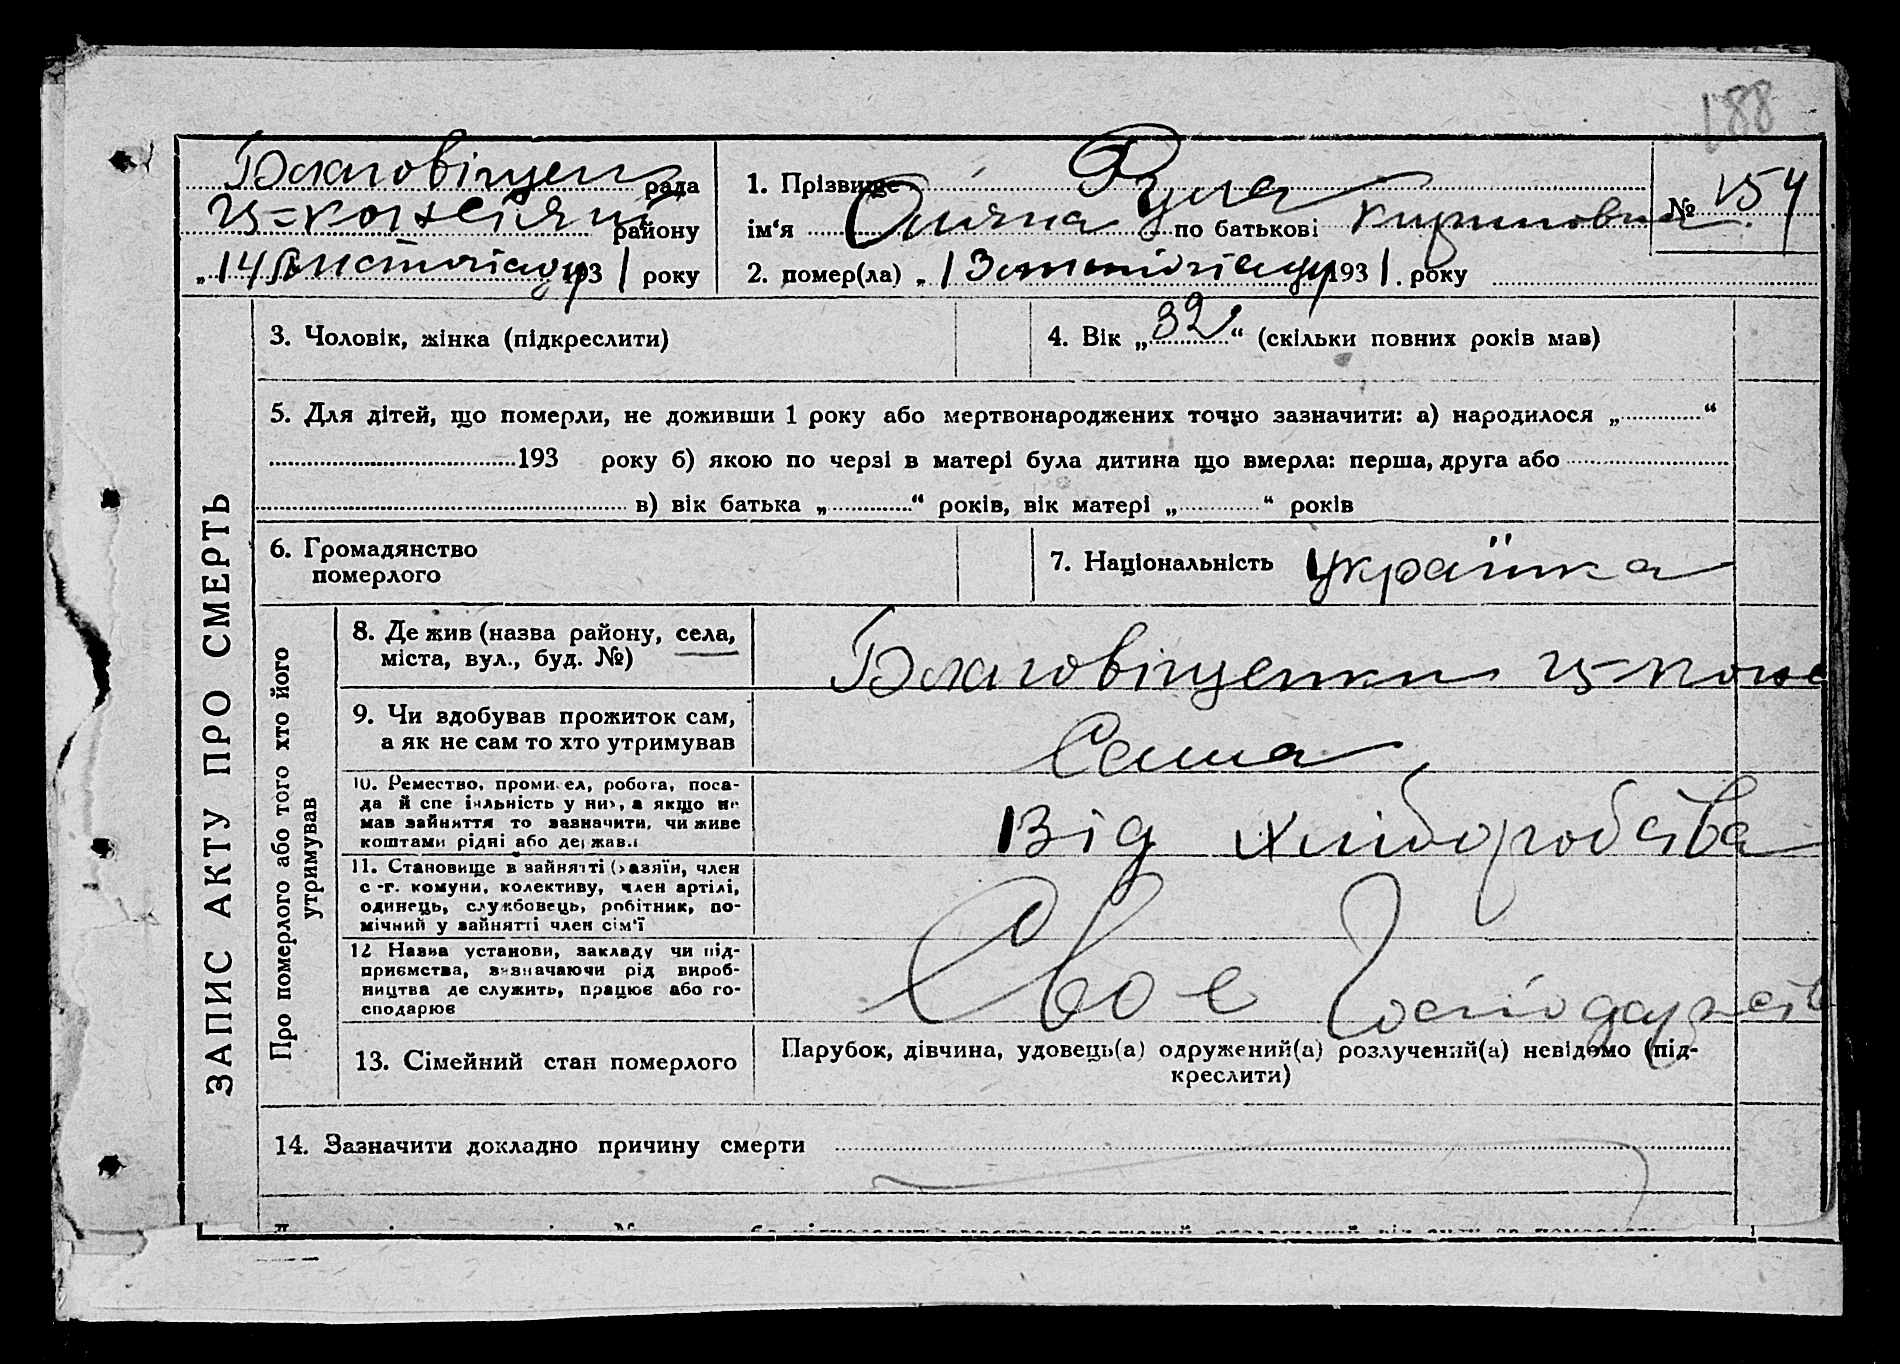 188
Благовіщен рада
району
„14 Листопаду 1931 року
1. Прізвище
ім‘я по батькові
№ 154
2. помер(ла) „13 листопіаду 1931. року
ЗАПИС АКТУ ПРО СМЕРТЬ
3. Чоловік, жінка (підкреслити)
4. Вік „32“ (скільки повних років мав)
5. Для дітей, що померли, не доживши 1 року або мертвонароджених точно зазначити: а) народилося „ “
193 року б) якою по черзі в матері була дитина що вмерла: перша, друга або
в) вік батька „ “ років, вік матері „ “ років
6. Громадянство
померлого
7. Національність Українка
Про померлого або того хто його
утримував
8. Де жив (назва району, села,
міста, вул., буд. №)
Благовіщенки
9. Чи здобував прожиток сам,
а як не сам то хто утримував
Сама
10. Ремество, промисел, робота, поса-
да й спеціяльність у них, а якщо не
мав зайняття то зазначити, чи живе
коштами рідні або держави
Від хліборобства
11. Становище в зайнятті (хазяїн, член
с-г. комуни, колективу, член артілі,
одинець, службовець, робітник, по-
мічний у зайнятті член сім‘ї
12 Назва установи, закладу чи під-
приємства, визначаючи рід вироб-
ництва де служить, працює або го-
сподарює
Своє Господарств
13. Сімейний стан померлого
Парубок, дівчина, удовець(а) одружений(а) розлучений(а) невідомо (під-
креслити)
14. Зазначити докладно причину смерти